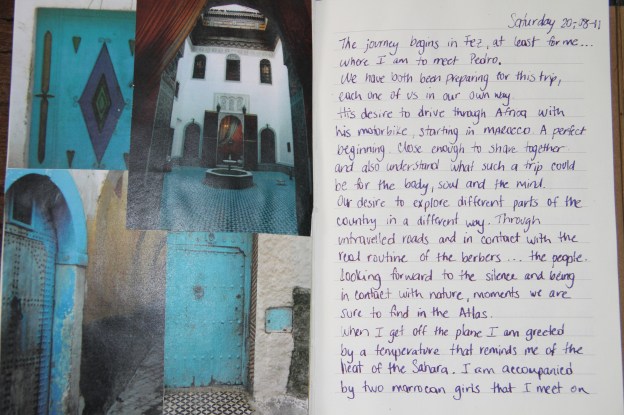 Saturday 20-08-11
The journey begins in Fez, at least for me...
where I am to meet Pedro.
We have both been preparing for this trip,
each one of us in our own way.
His desire to drive through Africa with
his motorbike, starting in maroccco. A perfect
beginning. Close enough to share together
and also understand what such a trip could
be for the body, soul and the mind.
Our desire to explore different parts of the
country in a different way. Through
untravelled roads and in contact with the
real routine of the berbers ... the people.
Looking forward to the silence and being
in contact with nature, moments we are
sure to find in the Atlas.
When I get off the plane I am greeted
by a temperature that reminds me of the
heat of the Sahara. I am accompanied
by two morrocan girls that I meet on